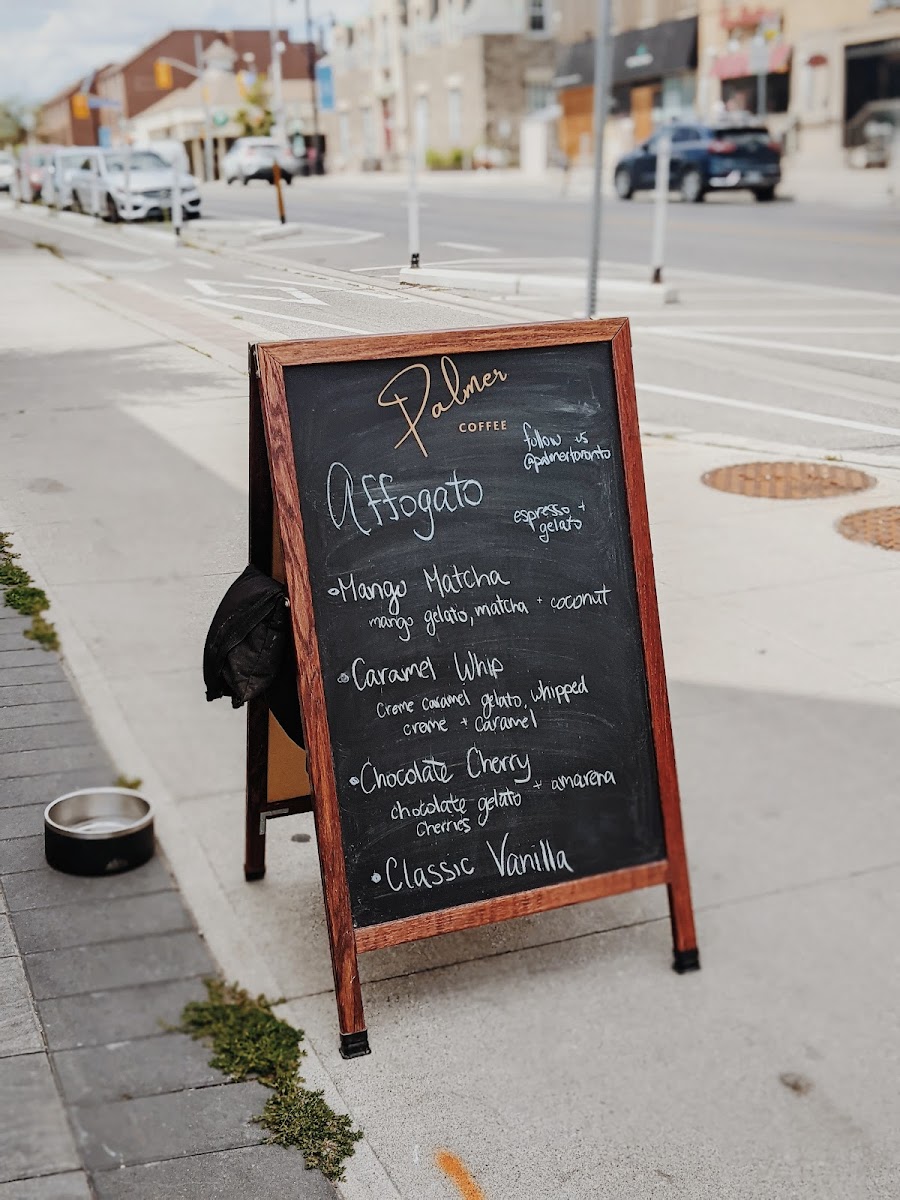 Palmer
COFFEE
follow us
@palmertoronto
Affogato
espresso +
gelato
•Mango Matcha
mango gelato, matcha + coconut
•Caramel Whip
creme caramel gelato, whipped
creme + caramel
•Chocolate Cherry
chocolate gelato + amarena
cherries
•Classic Vanilla